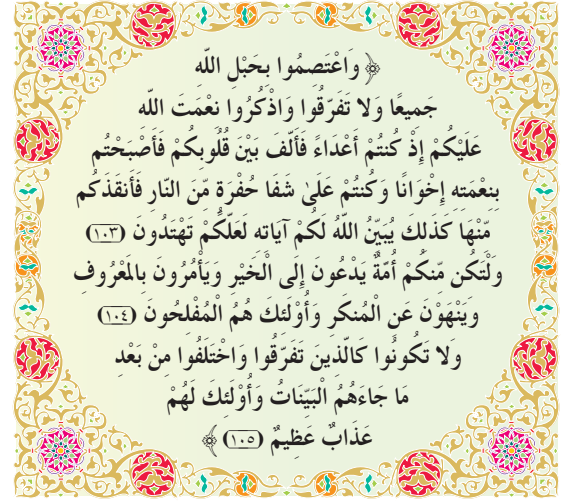 ﴿ وَاعْتَصِمُوا بِحَبْلِ اللّهِ
جَمِيعًا وَلا تَفَرّقُوا وَاذْكُرُوا نِعْمَتَ اللّهِ
عَلَيْكُمْ إِذْ كُنتُمْ أَعْدَاءً فَأَلّفَ بَيْنَ قُلُوبِكُمْ فَأَصْبَحْتُم
بِنِعْمَتِهِ إِخْوَانًا وَكُنتُمْ عَلَىٰ شَفَا حُفْرَةٍ مّنَ النّارِ فَأَنقَذَكُم
مّنْهَا كَذَلِكَ يُبَيّنُ اللّهُ لَكُمْ آيَاتِهِ لَعَلّكُمْ تَهْتَدُونَ (١٠٣)
وَلْتَكُن مّنكُمْ أُمّةٌ يَدْعُونَ إِلَى الْخَيْرِ وَيَأْمُرُونَ بِالمَعْرُوفِ
وَيَنْهَوْنَ عَنِ الْمُنكَرِ وَأُوْلَئِكَ هُمُ الْمُفْلِحُونَ (١٠٤)
وَلا تَكُونُوا كَالّذِينَ تَفَرّقُوا وَاخْتَلَفُوا مِنْ بَعْدِ
مَا جَاءَهُمُ الْبَيّنَاتُ وَأُوْلَئِكَ لَهُمْ
عَذَابٌ عَظِيمٌ (١٠٥) ﴾